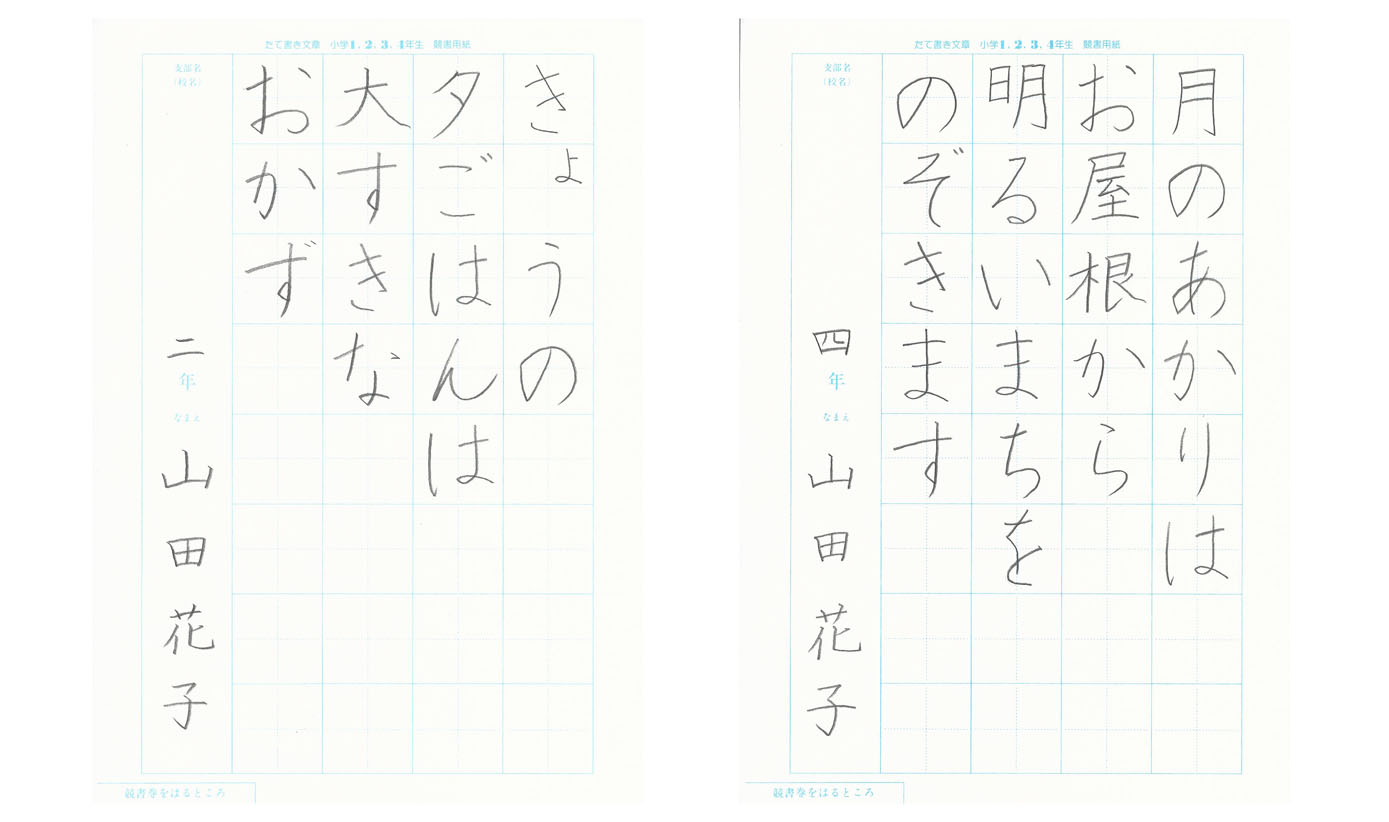 たて書き文章 小学1.2.3.4年生 競書用紙
きょうの
夕ごはんは
大すきな
おかず
支部名
（校名）
二年
なまえ
山田花子
競書巻をはるところ
たて書き文章 小学1.2.3.4年生 競書用紙
月のあかりは
お屋根から
明るいまちを
のぞきます
支部名
（校名）
四年
なまえ
山田花子
競書巻をはるところ